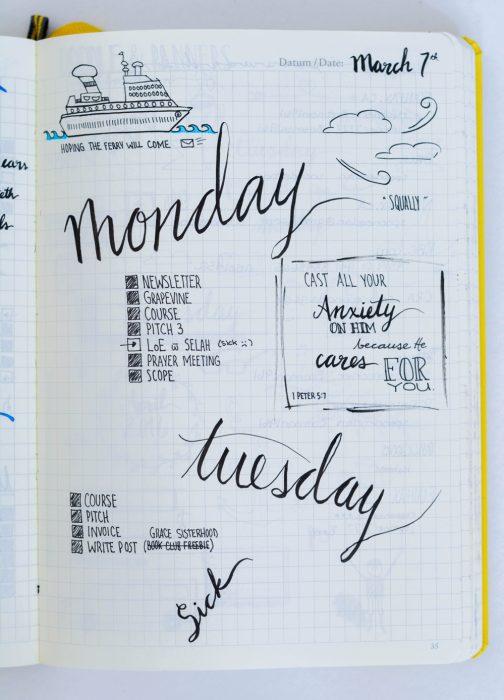 Datum / Date: March 7th
HOPING THE FERRY WILL COME
monday
"SQUALLY"
NEWSLETTER
GRAPEVINE
COURSE
PITCH 3
LoE w SELAH (sick :()
PRAYER MEETING
SCOPE
CAST ALL YOUR
Anxiety
ON HIM
because He
cares FOR
YOU.
1 PETER 5:7
tuesday
COURSE
PITCH
INVOICE GRACE SISTERHOOD
WRITE POST (BOOK CLUB FREEBIE)
Sick
35